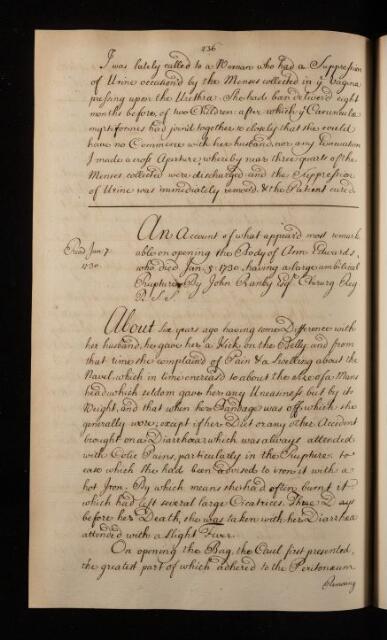 236
I was lately called to a Woman who had a Suppression
of Urine occasion'd by the Menses collected in yͤ Vagina
pressing upon the Urethra. She had been deliver'd eight
months before, of two Children: after which yͤ Carunculæ
myrtiformes had join'd together so closely that she could
have no Commerce with her husband, nor any Evacuation
I made a cross Aperture, whereby near three quarts of the
Menses collected were discharged and the Suppression
of Urine was immediately remov'd & the Patient cured
An Account of what appear'd most remark
Read Jan. 7
able on opening the Body of Ann Edwards,
1730.
who died Jan. 5. 1730. having a large umbilical
Rupture. By John Ranby Esqʳ. Chirurg Reg.
R. S. S.
About six years ago having some Difference with
her husband, he gave her a Kick on the Belly, and from
that time she complain'd of Pain & a Swelling about the
Navel, which in time encreas'd to about the size of a Mans
head which seldom gave her any Uneasiness but by its
Weight, and that when her Bandage was off, which she
generally wore, except if her Diet or any other Accident
brought on a Diarrhœa which was always attended
with Colic Pains, particularly in the Rupture: to
ease which she had been advised to iron it with a
hot Iron. By which means she had often burnt it
which had left several large Cicatrices. Three Days
before her Death, she was taken with her Diarrhœa
attended with a slight Fever.
On opening the Bag, the Caul first presented,
the greatest part of which adhered to the Peritonæum